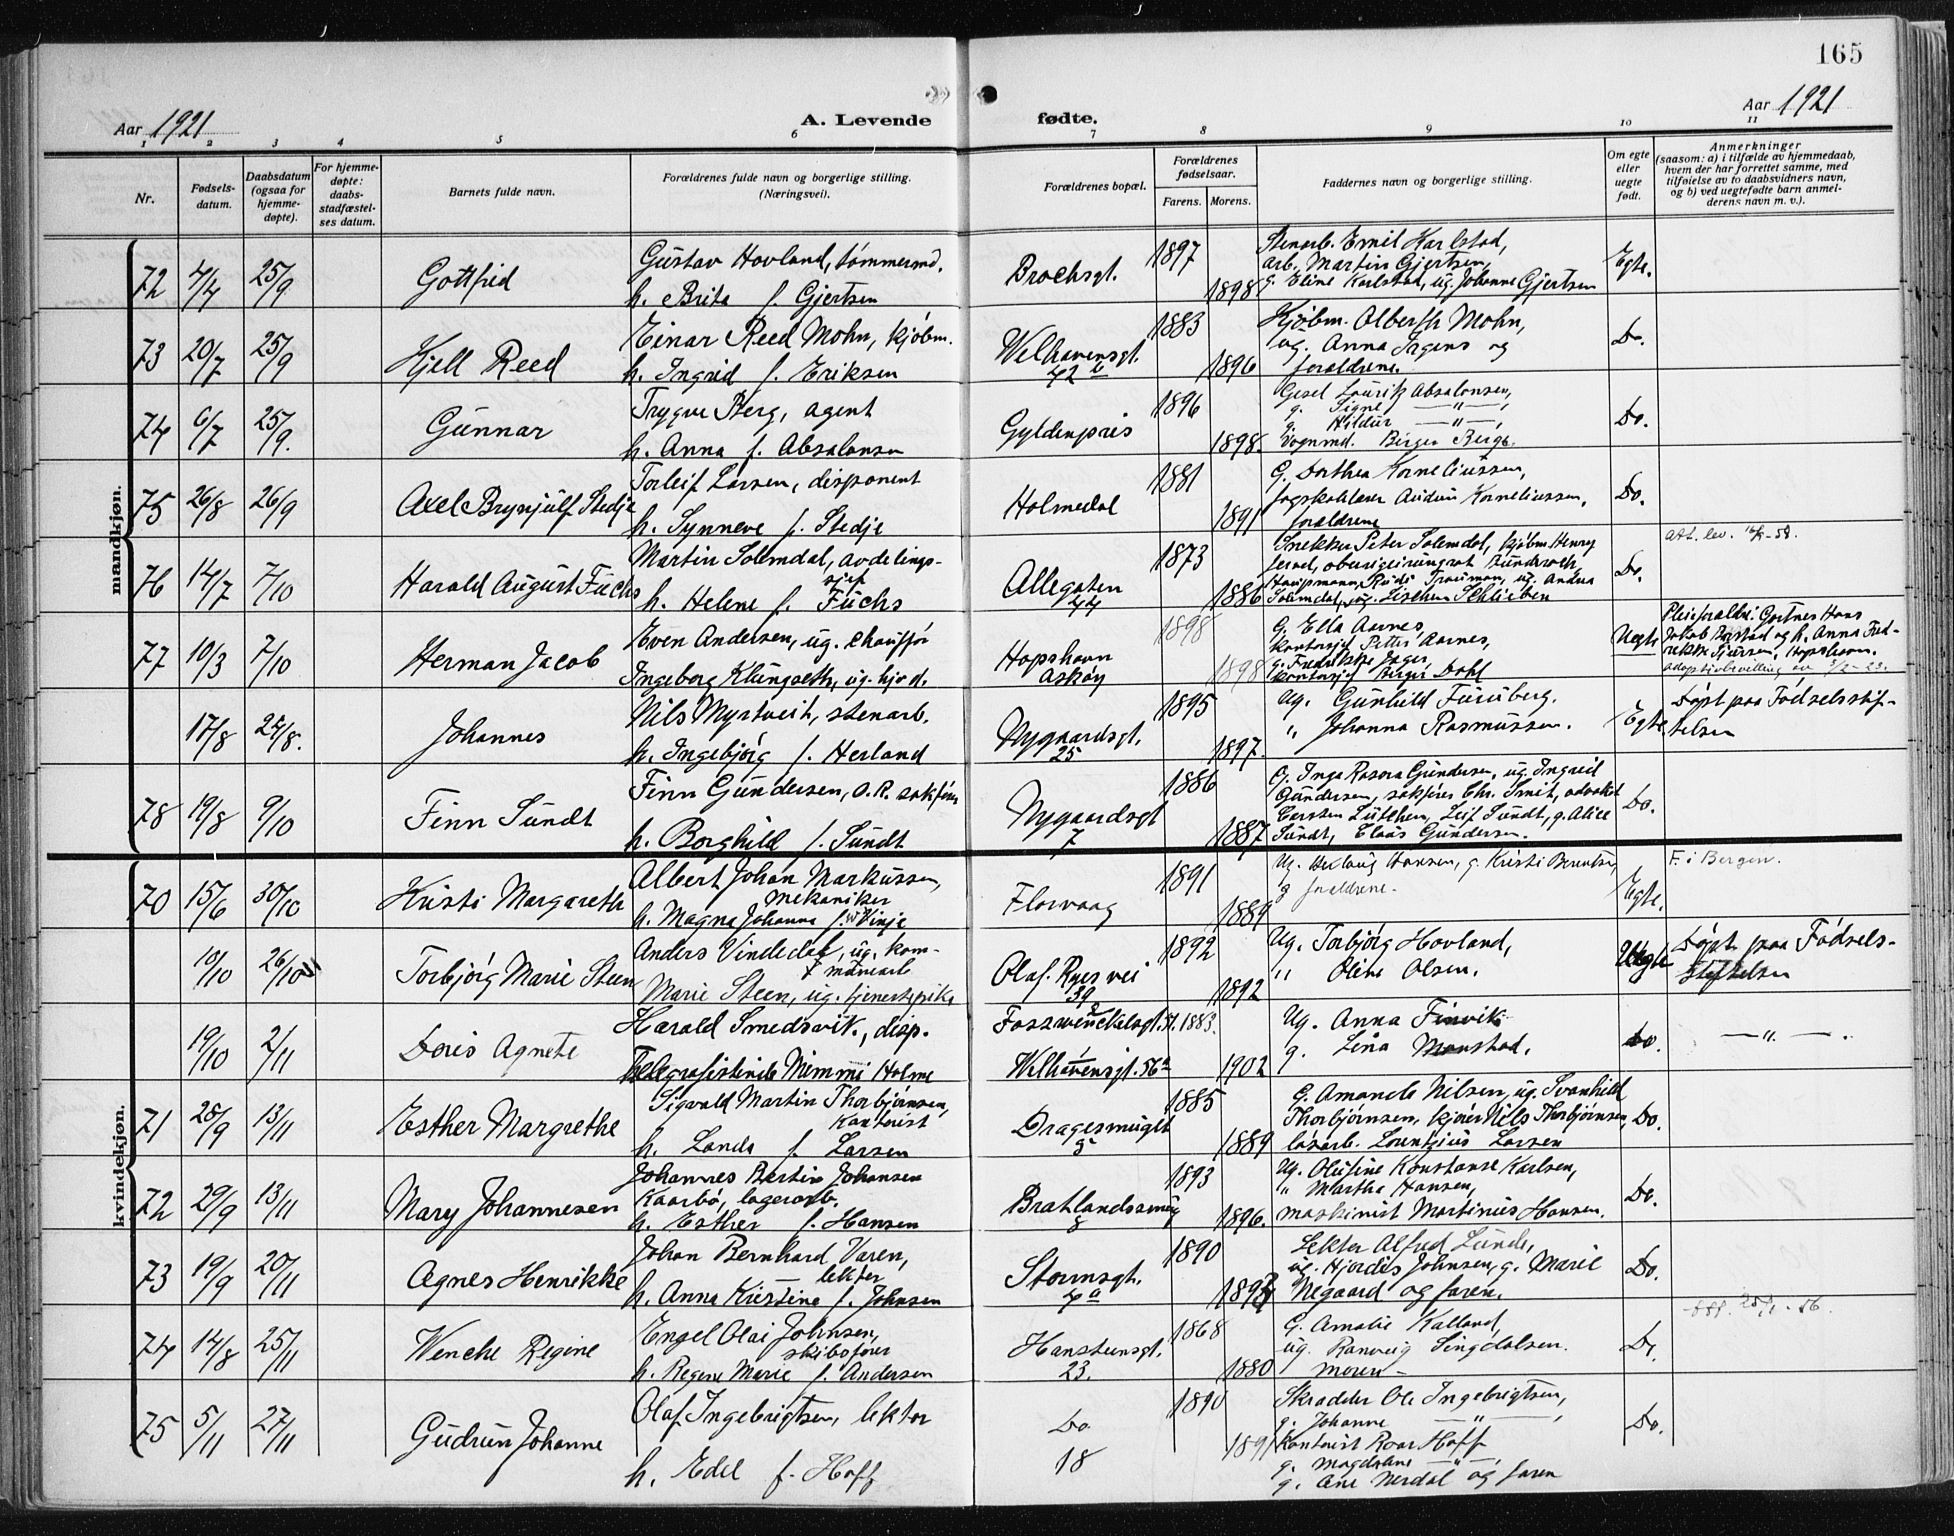 165
Aar 1921
A. Levende
fødte.
Aar 1921
1 2 3 4 5 6 7 8 9 10 11
Nr.
Fødsels-
datum.
Daabsdatum
(ogsaa for
hjemme-
døpte).
For hjemme-
døpte:
daabs-
stadfæstel-
ses datum.
Barnets fulde navn.
Forældrenes fulde navn og borgerlige stilling.
(Næringsvei).
Forældrenes bopæl.
Forældrenes
fødselsaar.
Farens. Morens.
Faddernes navn og borgerlige stilling.
Om egte
eller
uegte
født.
Anmerkninger
(saasom: a) i tilfælde av hjemmedaab,
hvem der har forrettet samme, med
tilføielse av to daabsvidners navn,
og b) ved uegtefødte barn anmel-
derens navn m. v.).
mandkjøn.
72 4/4 25/9 Gottfred
Gustav Hovland, tømmermd.
h. Brita f. Gjertsen
Brochsgt.
1897
1898
Stenarb. Emil Karlstad,
arb. Martin Gjertsen,
g. Eline Karlstad, ug. Johanne Gjertsen
Egte.
73 20/7 25/9 Kjell Reed
Einar Reed Mohn, kjøbm.
h. Ingrid f. Eriksen
Welhavensgt.
42 b
1883
1896
Kjøbm. Albert Mohn,
ug. Anna Irgens og
forældrene.
Do.
74 6/7 25/9. Gunnar
Trygve Berg, agent
h. Anna f. Absalonsen
Gyldenpris
1896
1898.
Lauritz Absalonsen,
g. Signe —"—,
g. Hildur —"—,
Vognmd. Birger Berge.
Do.
75 26/8 26/9 Axel Brynjulf Stedje
Torleif Larsen, disponent
h. Synneve f. Stedje
Holmedal
1881
1891
G. Dorthea Korneliussen,
fagskolelærer Audun Korneliussen,
forældrene
Do.
76 14/7 7/10 Harald August Fuchs
Martin Solemdal, avdelings-
sjef
h. Helene f. Fuchs
Allegaten
44
1873
1886
att. lev. 16/8-58.
Snekker Peter Solemdal, kjøbm Henry
Solemdal, ug. Lischen Schlieben
Do.
77 10/3 7/10 Herman Jacob
Even Andersen, ug. chauffør
Ingeborg Klungseth, ug. hjvd.
Hopshavn
Askøy
1898
1898
G. Ella Aarnes,
kontorsjef Peter Aarnes,
g. Fredrikke Jager
kontorsjef Birger Dahl
Uegte
Pleieforældre: Gartner Hans
Jakob Børstad og h. Anna Fred-
rikke Sjursen, Hopshavn.
adoptivbevilling av 3/2-23.
17/8 24/8. Johannes
Nils Myrtveit, stenarb.
h. Ingebjørg f. Herland
Nygaardsgt.
25
1895
1897.
Ug. Gunhild Furuberg.
" Johanna Rasmussen.
Egte
Døpt paa Fødselsstif-
telsen
78 19/8 9/10 Finn Sundt
Finn Gundersen, O.R. sakfører
h. Borghild f. Sundt
Nygaardsgt
7
1886
1887
G. Inga Rosora Gundersen, ug. Ingrid
Gundersen, sakfører Chr. Smit, advokat
Carsten Lütchen, Leif Sundt, g. Alice
Sundt, Claus Gundersen.
Do.
kvindekjøn.
70 15/6 30/10 Kristi Margareth
Albert Johan Markussen,
mekaniker
h. Magna Johanna f. Vinje
Florvaag
1891
1889
Ug. Hedvig Hansen, g. Kristi Berentsen,
g forældrene.
Egte.
F. i Bergen.
10/10 26/10 Torbjørg Marie Steen
Anders Vindedal, ug. kom-
munearb
Marie Steen, ug. tjenestepike
Olaf Ryes vei
39
1892
1892
Ug. Torbjørg Hovland,
" Oline Olsen.
Uegte
Døpt paa Fødsels-
stiftelsen
19/10 2/11 Doris Agnete
Harald Smedsvik, disp.
Telegrafistinde Mimmi Holme
Fosswinckelsgt. 51.
Welhavensgt. 56 a
1883.
1902
Ug. Anna Finvik
g. Lena Monstad.
Do.
—"—.
71 28/9 13/11 Esther Margrethe
Sigvald Martin Thorbjørnsen,
Kontorist
h. Landa f. Larsen
Dragesmuget
9
1885
1889
G. Amanda Nilsen, ug. Svanhild
Thorbjørnsen, kjører Nils Thorbjørnsen,
løsarb. Lorentzius Larsen
Do.
72 29/9 13/11 Mary Johannesen
Johannes Bertin Johansen
Kaarbø, lagerarb.
h. Esther f. Hansen
Bratlandssmug
8
1893
1896.
Ug. Olufine Konstanse Karlsen,
" Martha Hansen,
maskinist Martinius Hansen.
Do.
73 19/9 20/11 Agnes Henrikke
Johan Bernhard Varen,
lektor
h. Anna Kristine f. Johnsen
Stormsgt.
4 a
1890
1894
Lektor Alfred Lunde,
ug. Hjordis Johnsen, g. Marie
Negaard og faren.
Do.
74 14/8 25/11 Wenche Regine
Engel Olai Johnsen,
skibsfører
h. Regine Marie f. Andersen
Hansteensgt.
23.
1868
1880
G. Amalie Kalland,
ug. Ranveig Singdalsen.
moren —
Do.
25/1-56.
75 5/11 27/11 Gudrun Johanne
Olaf Ingebrigtsen, lektor
h. Edel f. Hoff
Do.
18
1890
1891
Skrædder Ole Ingebrigtsen,
g. Johanne —"—,
Kontorist Roar Hoff
g. Magdalene —"—,
g. Ane Nerdal og faren
Do.